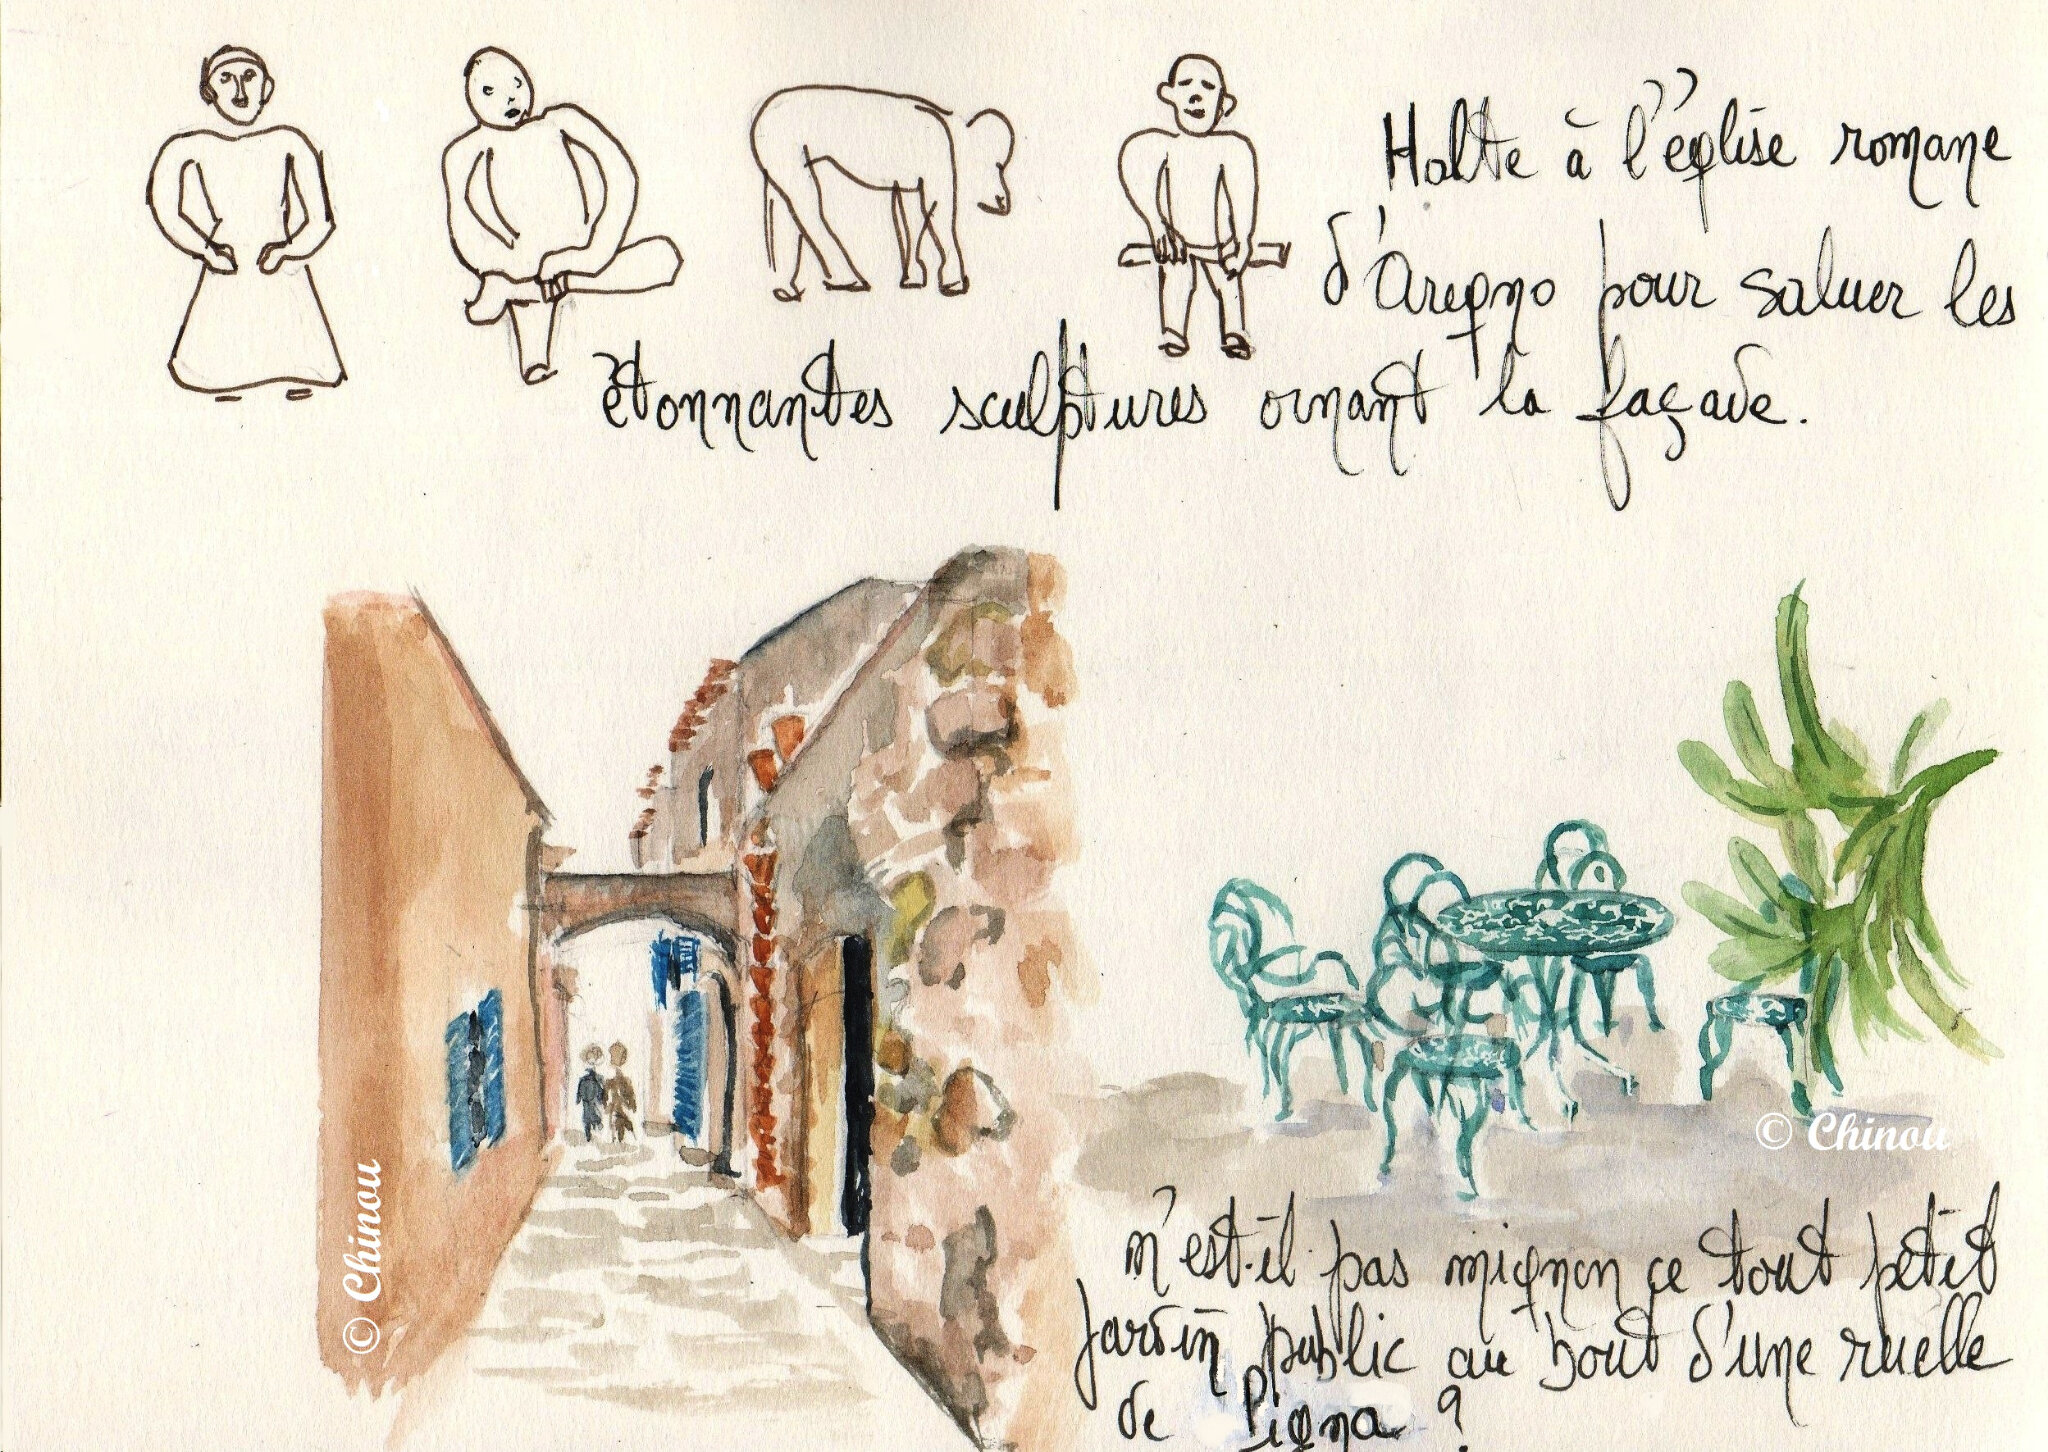 Halte à l'église romane
d'Aregno pour saluer les
étonnantes sculptures ornant la façade.
© Chinou
© Chinou
n'est-il pas mignon ce tout petit
jardin public au bout d'une ruelle
de Pigna ?